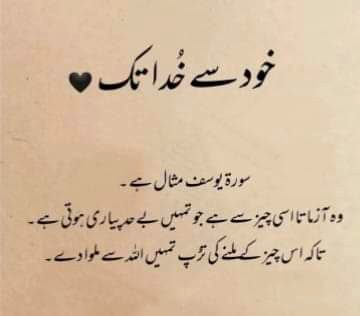 خود سے خُدا تک 🖤
سورۃ یوسف مثال ہے۔
وہ آزماتا اسی چیز سے ہے جو تمہیں بے حد پیاری ہوتی ہے۔
تاکہ اس چیز کے ملنے کی تڑپ تمہیں اللہ سے ملوا دے۔